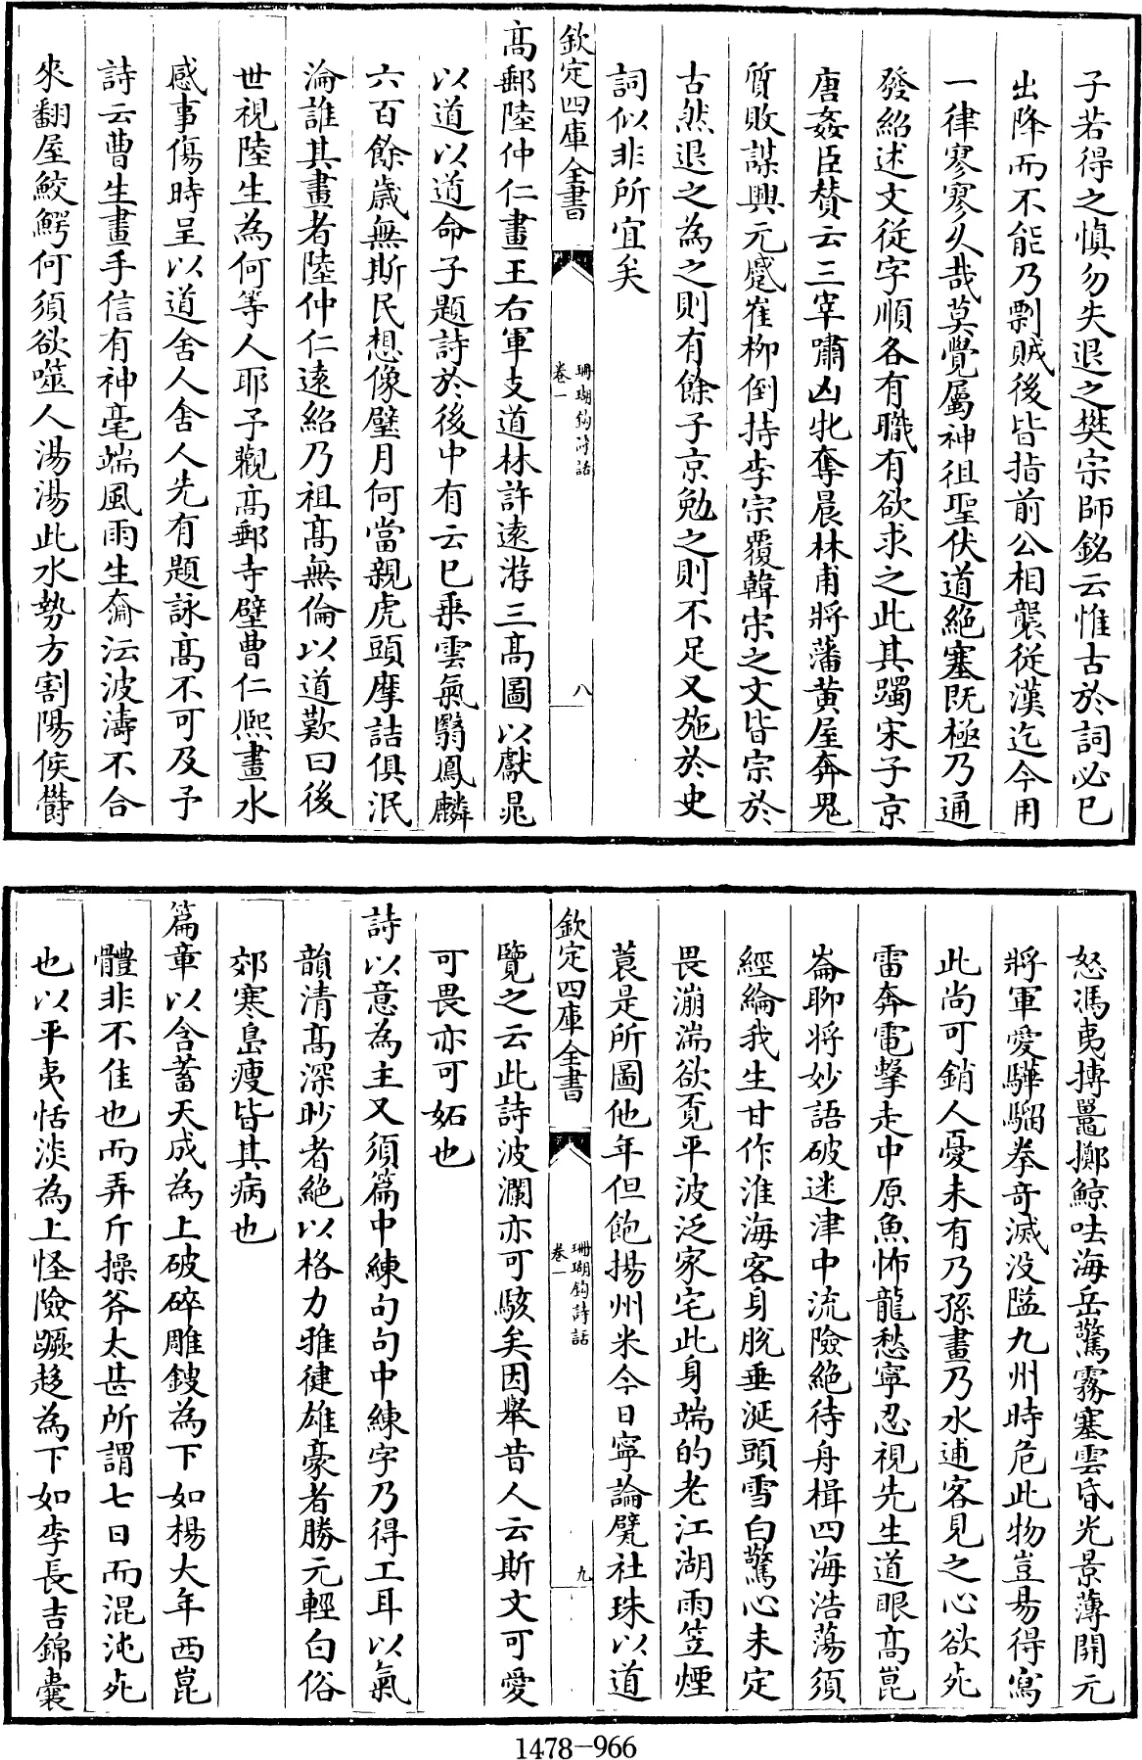 子若得之慎勿失退之樊宗師銘云惟古於詞必已
出降而不能乃剽賊後皆指前公相襲從漢迄今用
一律寥寥久哉莫覺屬神徂聖伏道絶塞既極乃通
發紹述文從字順各有職有欲求之此其躅宋子京
唐姦臣贊云三宰嘯凶牝奪晨林甫將藩黄屋奔鬼
質敗謀興元蹙崔柳倒持李宗覆韓宋之文皆宗於
古然退之為之則有餘子京勉之則不足又施於史
詞似非所宜矣
欽定四庫全書
珊瑚鈎詩話
卷一
八
髙郵陸仲仁畫王右軍支道林許遠游三髙圖以獻晁
以道以道命子題詩於後中有云已乗雲氣翳鳳麟
六百餘歳無斯民想像璧月何當親虎頭摩詰俱泯
淪誰其畫者陸仲仁遠紹乃祖髙無倫以道歎曰後
世視陸生為何等人耶予觀髙郵寺壁曹仁熙畫水
感事傷時呈以道舍人舍人先有題詠髙不可及予
詩云曹生畫手信有神毫端風雨生奫沄波濤不合
來翻屋鮫鰐何須欲噬人湯湯此水勢方割陽侯欝
怒馮夷搏鼉擲鯨呿海岳驚霧塞雲昏光景薄開元
將軍愛驊騮拳奇滅没隘九州時危此物豈易得寫
此尚可銷人憂未有乃孫畫乃水逋客見之心欲死
雷奔電擊走中原魚怖龍愁寜忍視先生道眼髙崑
崙聊將妙語破迷津中流險絶待舟楫四海浩蕩須
經綸我生甘作淮海客身脱垂涎頭雪白驚心未定
畏漰湍欲覔平波泛家宅此身端的老江湖雨笠煙
蓑是所圖他年但飽揚州米今日寧論甓社珠以道
欽定四庫全書
珊瑚鈎詩話
卷一
九
覽之云此詩波瀾亦可駭矣因舉昔人云斯文可愛
可畏亦可妬也
詩以意為主又須篇中練句句中練字乃得工耳以氣
韻清髙深眇者絶以格力雅健雄豪者勝元輕白俗
郊寒島瘦皆其病也
篇章以含蓄天成為上破碎雕鎪為下如楊大年西崑
體非不佳也而弄斤操斧太甚所謂七日而混沌死
也以平夷恬淡為上怪險蹶趍為下如李長吉錦囊
1478-966